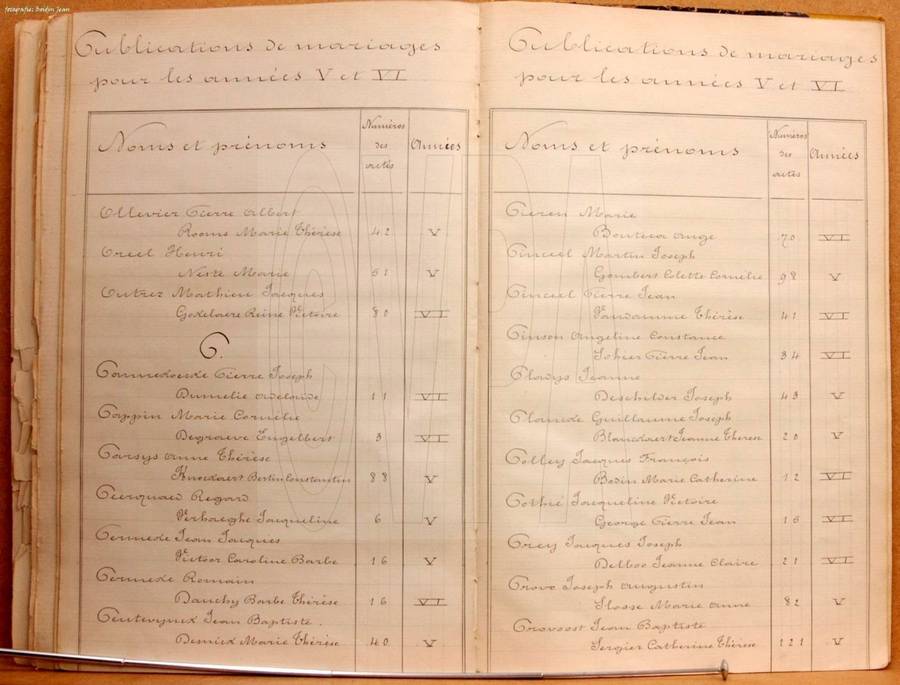 fotografie: Boidin Jean
Publications de mariages
pour les années V et VI
Noms et prénoms
Numéros des actes
Années
Ollevier Pierre Albert
Rooms Marie Thérèse 42 V
Oreel Henri
Neste Marie 61 V
Outrez Mathieu Jacques
Godelaere Reine Victoire 80 VI
P.
Pannedoeude Pierre Joseph
Dumelie Adelaïde 11 VI
Pappin Marie Cornélie
Degraeve Engelbert 3 VI
Parsys Anne Thérèse
Knockaert Bertin Constantin 88 V
Regard
Verhaeghe Jacqueline 6 V
Permede Jean Jacques
Pietoor Caroline Barbe 16 V
Permede Romain
Dauchy Barbe Thérèse 16 VI
Jean Baptiste.
Desmick Marie Thérèse 40 V
Publications de mariages
pour les années V et VI
Noms et prénoms
Numéros des actes
Années
Pieren Marie
Ange 70 VI
Pinceel Martin Joseph
Gombert Colette Cornélie 98 V
Pinceel Pierre Jean
Vandamme Thérèse 41 VI
Pinson Angeline Constance
Sohier Pierre Jean 34 VI
Pladys Jeanne
Deschilder Joseph 43 V
Plamde Guillaume Joseph
Blanckaert Jeanne Therese 20 V
Polley Jacques François
Bodin Marie Catherine 12 VI
Pothié Jacqueline Victoire
George Pierre Jean 15 VI
Prey Jacques Joseph
Delboo Jeanne Claire 21 VI
Provo Joseph Augustin
Slosse Marie Anne 82 V
Provoost Jean Baptiste
Sergier Catherine Thérèse 121 V